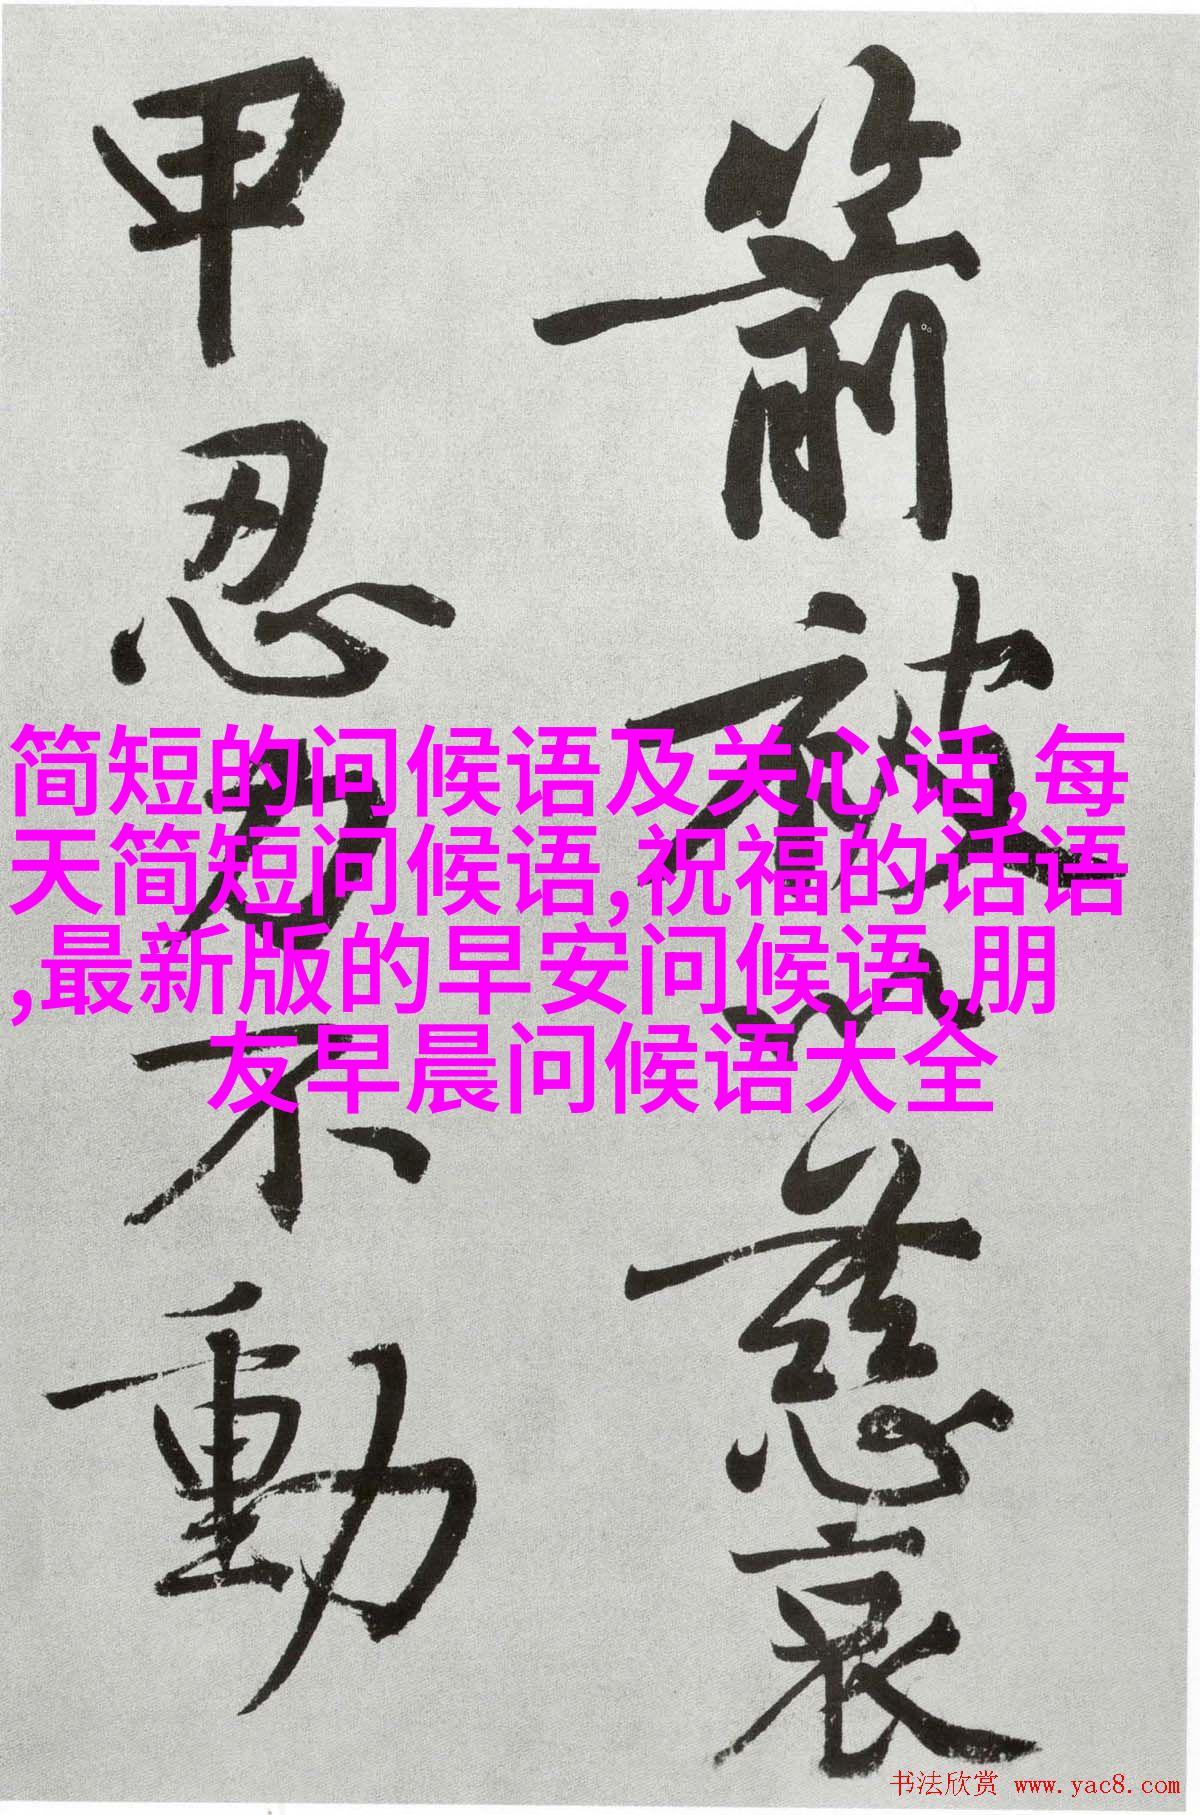 箭被慈哀
甲忍不動
简短的问候语及关心话,每
天简短问候语,祝福的话语
,最新版的早安问候语,朋
友早晨问候语大全
书法欣赏 www.yac8.com